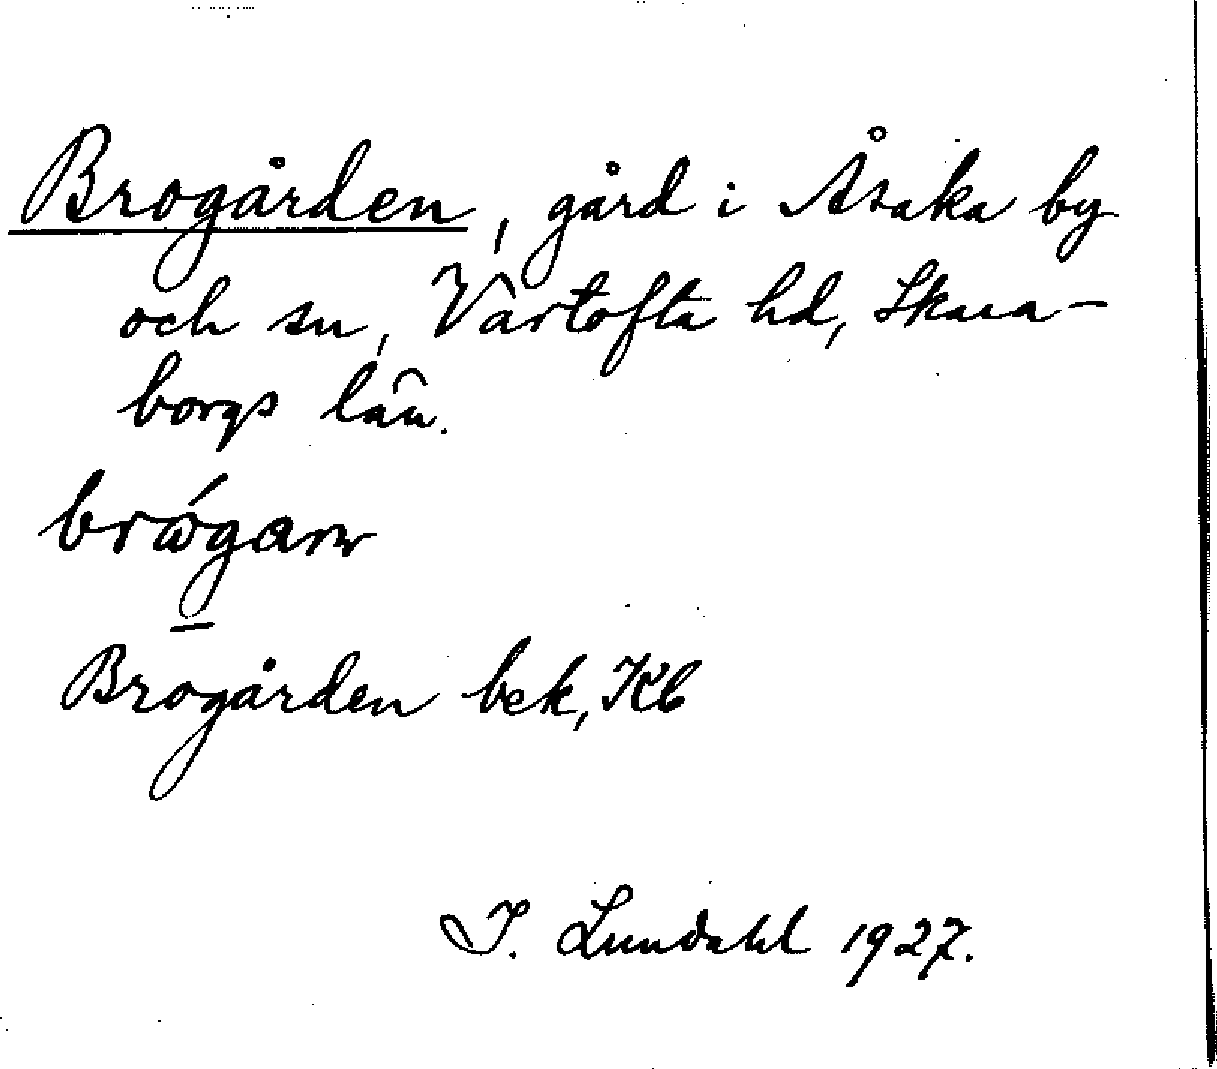 Brogården, gård i Åsaka by
och sn, Vartofta hd, Skara-
borgs län.
Brogården bek, Kb
I. Lundahl 1927.